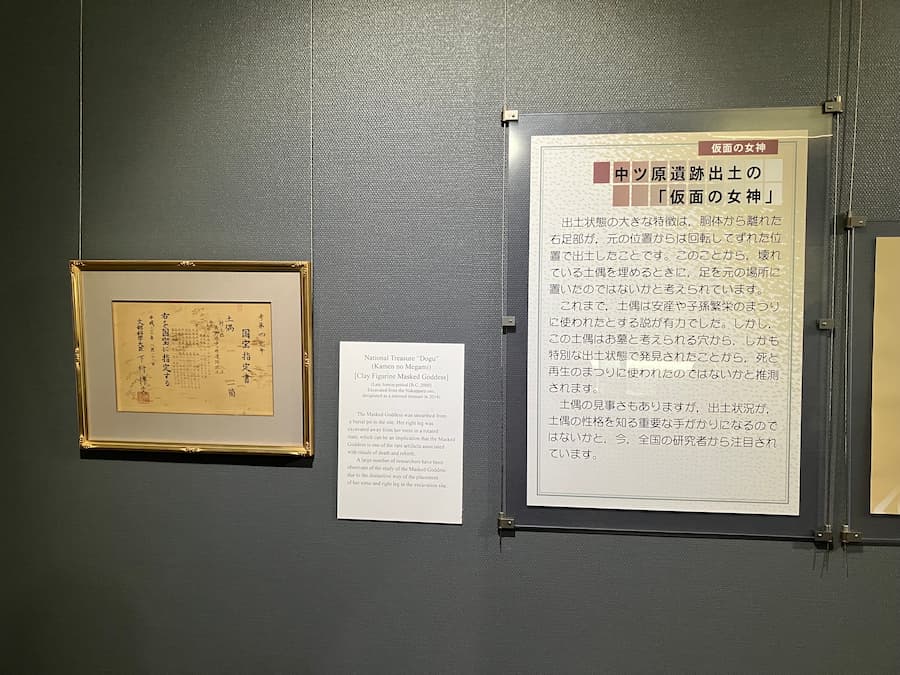 国宝指定書
土偶
一箇
右を国宝に指定する
National Treasure "Dogu"
(Kamen no Megami)
[Clay Figurine Masked Goddess]
(Late Jomon period (B.C. 2000)
Excavated from the Nakappara site,
designated as a national treasure in 2014)
The Masked Goddess was unearthed from
a burial pit in the site. Her right leg was
excavated away from her torso in a rotated
state, which can be an implication that the Masked
Goddess is one of the rare artifacts associated
with rituals of death and rebirth.
A large number of researchers have been
observant of the study of the Masked Goddess
due to the distinctive way of the placement
of her torso and right leg in the excavation site.
仮面の女神
中ツ原遺跡出土の
「仮面の女神」
出土状態の大きな特徴は，胴体から離れた
右足部が，元の位置からは回転してずれた位
置で出土したことです。このことから，壊れ
ている土偶を埋めるときに，足を元の場所に
置いたのではないかと考えられています。
これまで，土偶は安産や子孫繁栄のまつり
に使われたとする説が有力でした。しかし，
この土偶はお墓と考えられる穴から，しかも
特別な出土状態で発見されたことから，死と
再生のまつりに使われたのではないかと推測
されます。
土偶の見事さもありますが，出土状況が，
土偶の性格を知る重要な手がかりになるので
はないかと，今，全国の研究者から注目され
ています。